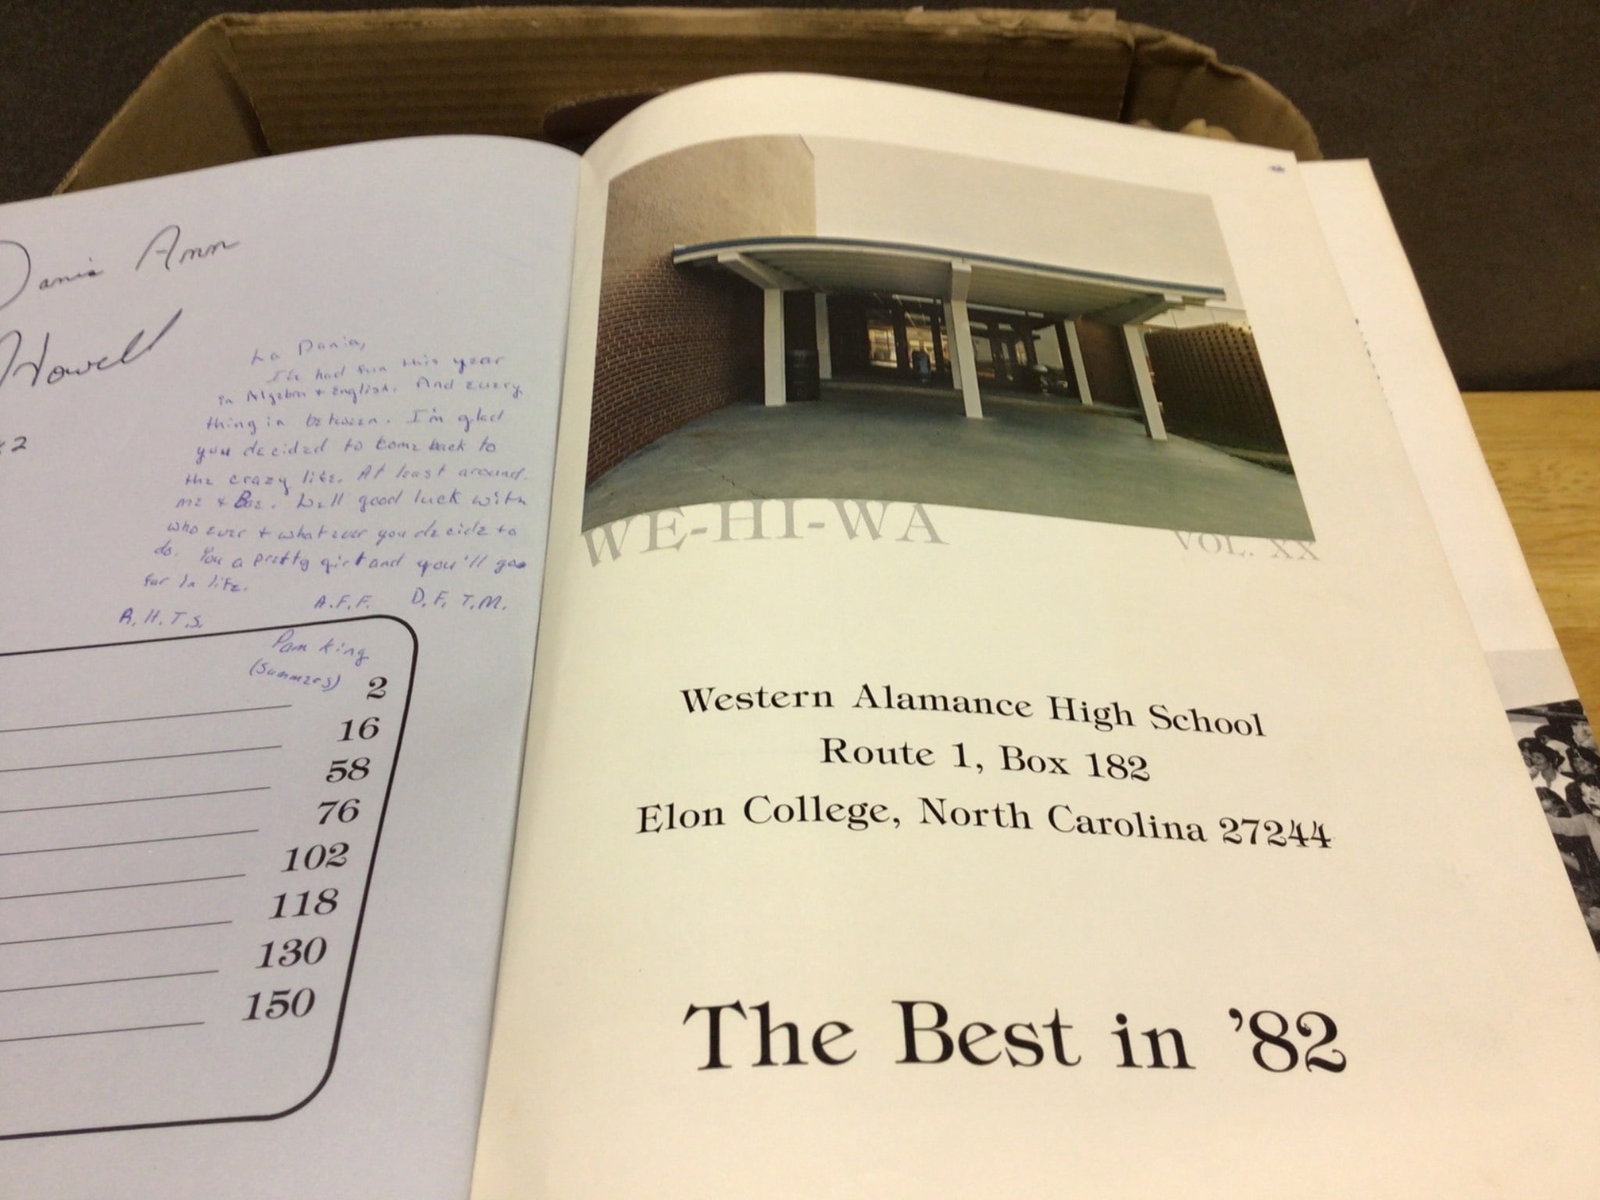 Dania Ann
Howell
To Dania,
I've had fun this year
in Algebra + English. And every
thing in between. I'm glad
you decided to come back to
the crazy life. At least around
me + Boe. Well good luck with
who ever + what ever you decide to
do. You a pretty girl and you'll go
far in life.
R.H.T.S. A.F.F. D.F.T.M.
Pam King
(Summers)
2
16
58
76
102
118
130
150
WE-HI-WA VOL. XX
Western Alamance High School
Route 1, Box 182
Elon College, North Carolina 27244
The Best in '82